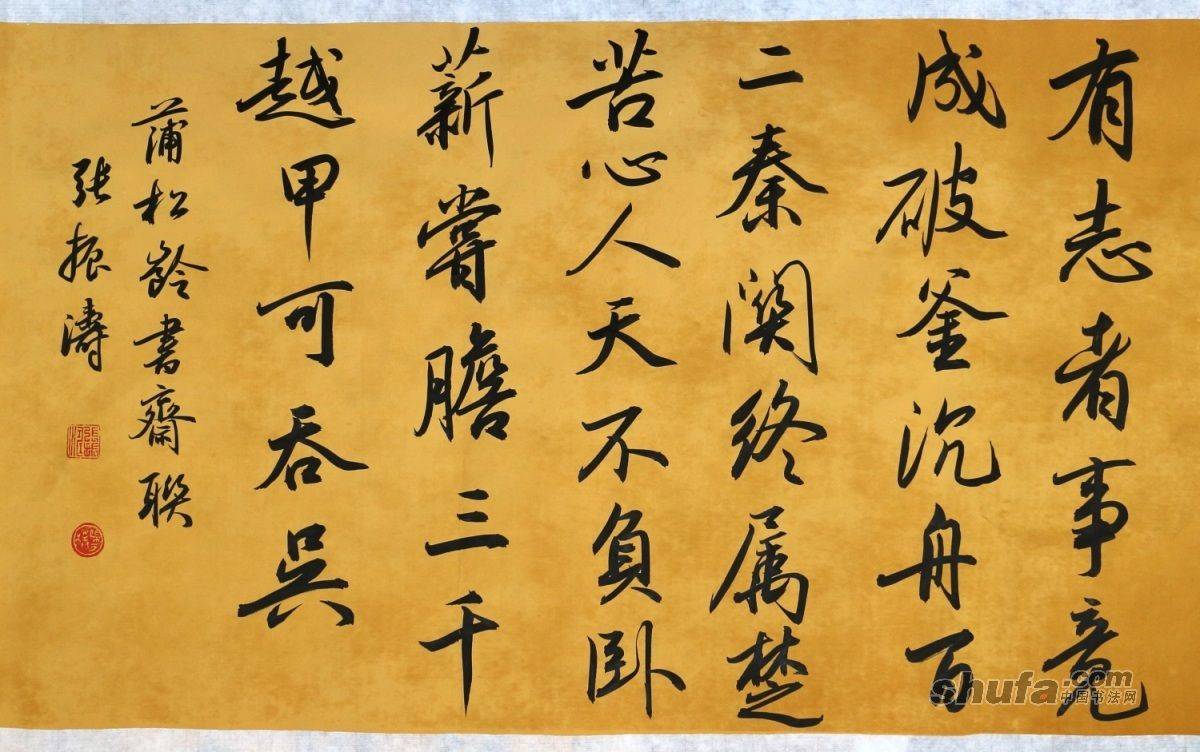 有志者事竟
成破釜沉舟百
二秦関终属楚
苦心人天不負卧
薪嘗膽三千
越甲可吞吴
蒲松齡書齋联
张振濤
shufa.com
中国书法网